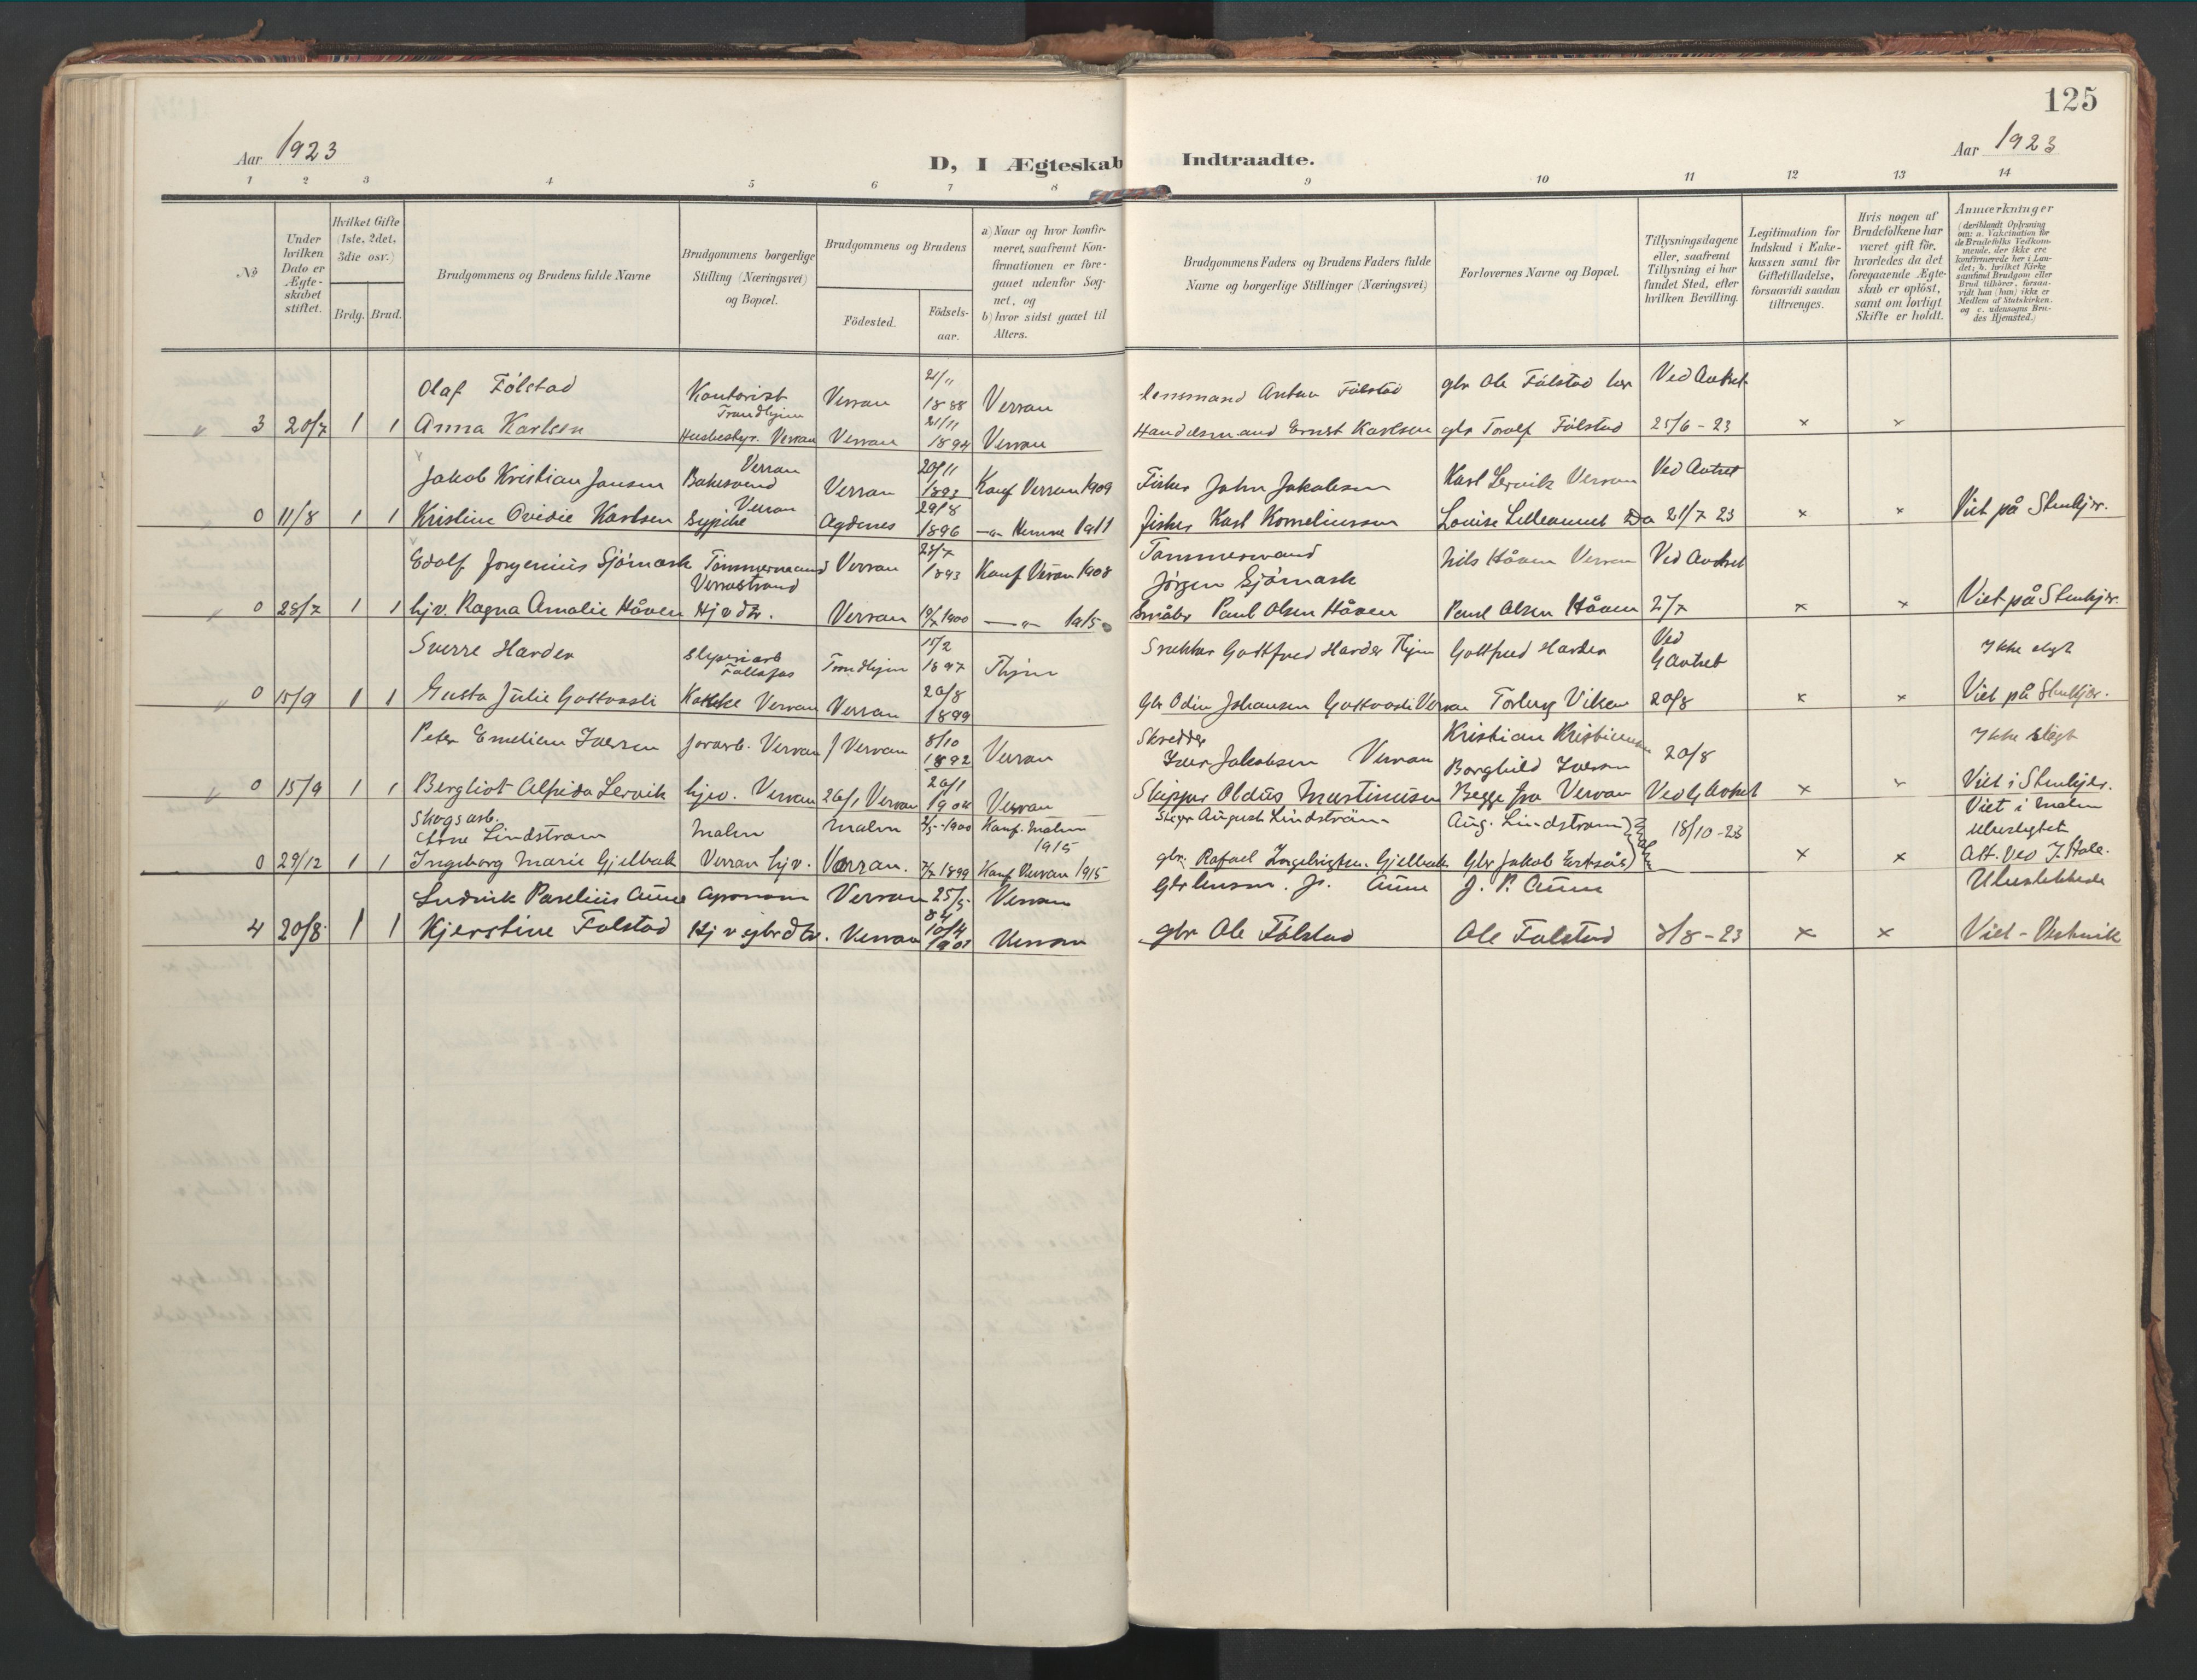 125
Aar 1923
D, I Ægteskab Indtraadte.
Aar 1923
1 2 3 4 5 6 7 8 9 10 11 12 13 14
№
Under hvilken Dato er Ægteskabet stiftet.
Hvilket Gifte (1ste, 2det, 3die osv.)
Brdg. Brud.
Brudgommens og Brudens fulde Navne
Brudgommens borgerlige Stilling (Næringsvei) og Bopæl.
Brudgommens og Brudens
Födested.
Födselsaar.
a) Naar og hvor konfirmeret, saafremt Konfirmationen er foregaaet udenfor Sognet, og
b) hvor sidst gaaet til Alters.
Brudgommens Faders og Brudens Faders fulde Navne og borgerlige Stillinger (Næringsvei)
Forlovernes Navne og Bopæl.
Tillysningsdagene eller, saafremt Tillysning ei har fundet Sted, efter hvilken Bevilling.
Legitimation for Indskud i Enkekassen samt for Giftetilladelse, forsaavidt saadan tiltrænges.
Hvis nogen af Brudefolkene har været gift för, hvorledes da det foregaaende Ægteskab er oplöst, samt om lovligt Skifte er holdt.
Anmærkninger
(deriblandt Oplysning om: a. Vakcination for de Brudefolks Vedkommende, der ikke ere konfirmerede her i Landet; b. hvilket Kirkesamfund Brudgom eller Brud tilhörer, forsaavidt han (hun) ikke er Medlem af Statskirken, og c. udensogns Brudes Hjemsted.)
Olaf Følstad Kontorist Trondhjem Verran 21/11 1888 Verran Lensmand Anton Følstad gbr Ole Følstad Ved Avtret
3 20/7 1 1 Anna Karlsen Husbestyr. Verran Verran 21/11 1894 Verran Handelsmand Ernst Karlsen gbr Torolf Følstad 25/6-23 × ×
Jakob Kristian Jansen Verran Verran 20/11 1893 Konf Verran 1909 Fisker John Jakobsen Karl Lervik Verran Ved Avtret
0 11/8 1 1 Kristine Ovidie Karlsen Sypike Verran Agdenes 29/8 1896 -"- Hemne 1911 fisker Karl Korneliussen Louise Lilleaunet Do 21/7 23 × × Viet på Stenkjer.
Edolf Jørgenius Sjømark Tømmermand Verrastrand Verran 1893 Konf Verran 1908 Tømmermand Jørgen Sjømark Nils Håven Verran Ved Avtret
0 28/7 1 1 hjv. Ragna Amalie Håven Hjv dtr. Verran 1900 -"- 1915 Småbr Paul Olsen Håven Paul Olsen Håven 2/7 × × Viet på Stenkjer.
Sverre Harder Sliperiarb Follafos Trondhjem 15/2 1897 Thjem Snekker Gottfred Harder Thjem Gottfred Harder Ved G Avtret Ikke slegt
0 15/9 1 1 Gusta Julie Gottvasli Kokke Verran Verran 20/8 1899 Gbr Odin Johansen Gottvasli Verran Torberg Viken 20/8 × × Viet på Stenkjer.
Peter Emelien Iversen Jordarb. Verran Verran 8/10 1892 Verran Skredder Iver Jakobsen Verran Kristian Kristiansen Borghild Iversen 20/8 Ikke slegt
0 15/9 1 1 Bergliot Alfrida Lervik hjv. Verran 26/1 Verran 26/1 1904 Verran Skipper Oldus Martinusen Begge fra Verran Ved G Avtret × × Viet i Stenkjer.
Skogsarb. Arne Lindstrøm Malm Malm 1900 Konf. Malm 1915 August Lindstrøm Aug. Lindstrøm 18/10-23 Viet i Malm Ubeslegtet
0 29/12 1 1 Ingeborg Marie Gjelbak Verran hjv. Verran. 1899 Konf Verran 1915 gbr. Rafael Ingebrigtsen Gjelbak Gbr Jakob × × Att. ved
Ludvik Paulius Aune Agronom Verran 25/5 84 Verran Gbr Lensm. Js. Aune J. P. Aune Ubeslektede
4 20/8 1 1 Kjerstine Følstad Hjv gbrdtr. Verran 10/4 1903 Verran gbr Ole Følstad Ole Følstad 8/8-23 × × Viet - Vestvik